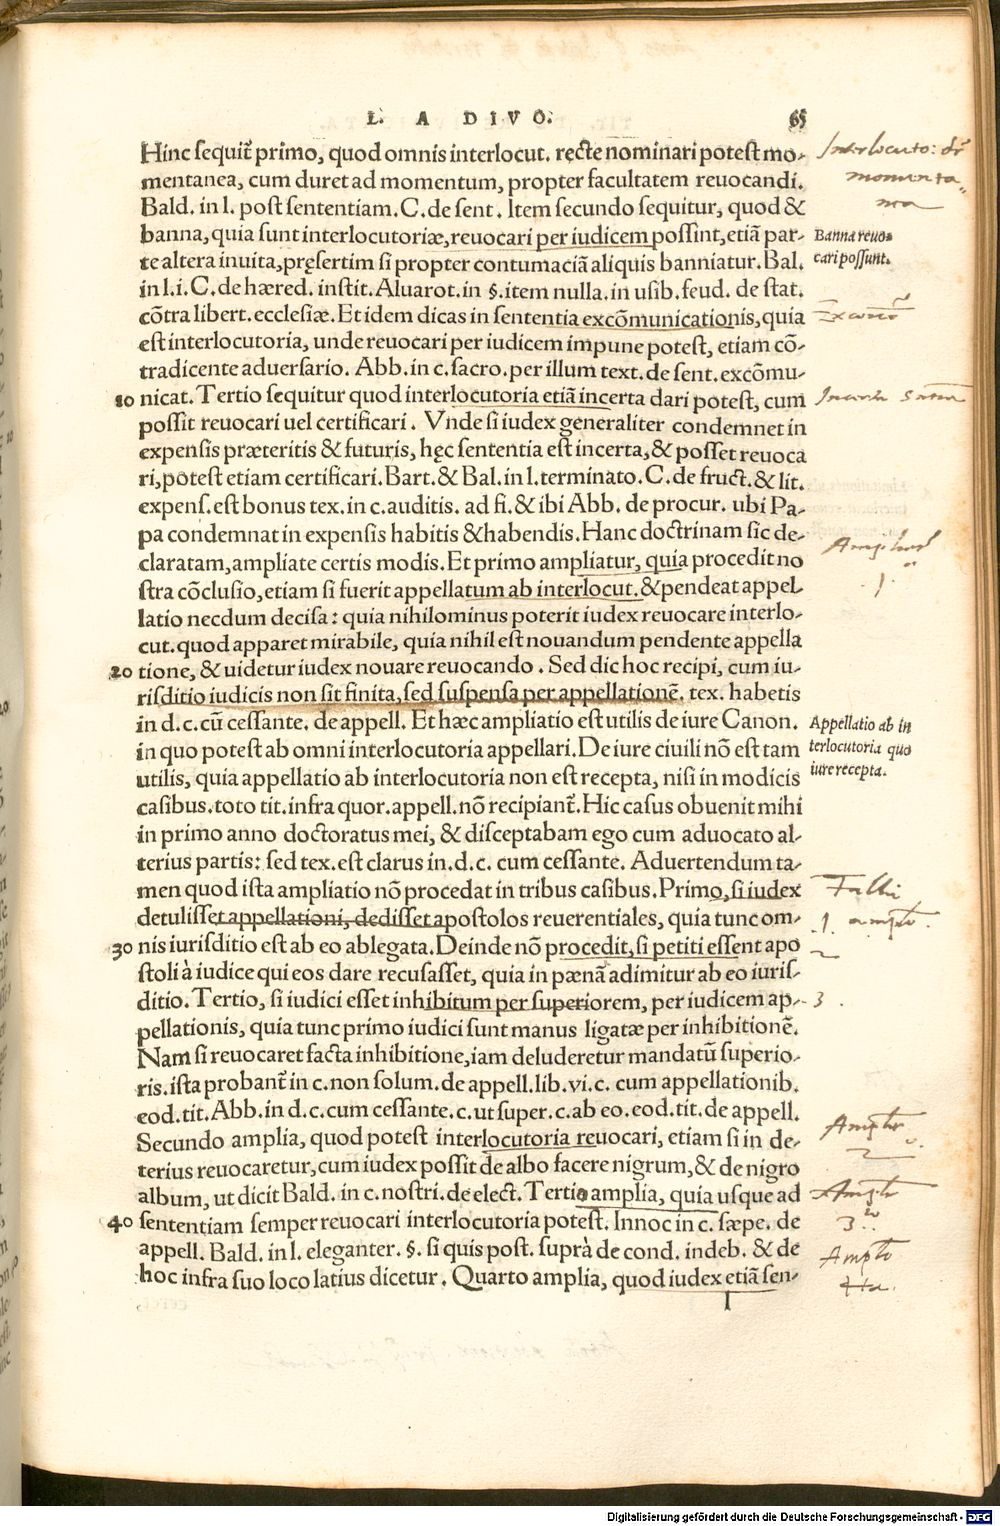 L. A DIVO. 65
Hinc sequit᷑ primo, quod omnis interlocut. recte nominari potest mo-
mentanea, cum duret ad momentum, propter facultatem reuocandi.
Bald. in l. post sententiam. C. de sent. Item secundo sequitur, quod &
banna, quia sunt interlocutoriæ, reuocari per iudicem possint, etiā par-
te altera inuita, pręsertim si propter contumaciā aliquis banniatur. Bal.
in l. i. C. de hæred. instit. Aluarot. in §. item nulla. in usib. feud. de stat.
cōtra libert. ecclesiæ. Et idem dicas in sententia excōmunicationis, quia
est interlocutoria, unde reuocari per iudicem impune potest, etiam cō-
tradicente aduersario. Abb. in c. sacro. per illum text. de sent. excōmu-
10 nicat. Tertio sequitur quod interlocutoria etiā incerta dari potest, cum
possit reuocari uel certificari. Vnde si iudex generaliter condemnet in
expensis præteritis & futuris, hęc sententia est incerta, & posset reuoca
ri, potest etiam certificari. Bart. & Bal. in l. terminato. C. de fruct. & lit.
expens. est bonus tex. in c. auditis. ad fi. & ibi Abb. de procur. ubi Pa-
pa condemnat in expensis habitis & habendis. Hanc doctrinam sic de-
claratam, ampliate certis modis. Et primo ampliatur, quia procedit no
stra cōclusio, etiam si fuerit appellatum ab interlocut. & pendeat appel-
latio necdum decisa: quia nihilominus poterit iudex reuocare interlo-
cut. quod apparet mirabile, quia nihil est nouandum pendente appella
20 tione, & uidetur iudex nouare reuocando. Sed dic hoc recipi, cum iu-
risditio iudicis non sit finita, sed suspensa per appellationē. tex. habetis
in d. c. cū cessante. de appell. Et hæc ampliatio est utilis de iure Canon.
in quo potest ab omni interlocutoria appellari. De iure ciuili nō est tam
utilis, quia appellatio ab interlocutoria non est recepta, nisi in modicis
casibus. toto tit. infra quor. appell. nō recipiant᷑. Hic casus obuenit mihi
in primo anno doctoratus mei, & disceptabam ego cum aduocato al-
terius partis: sed tex. est clarus in. d. c. cum cessante. Aduertendum ta-
men quod ista ampliatio nō procedat in tribus casibus. Primo, si iudex
detulisset appellationi, dedisset apostolos reuerentiales, quia tunc om-
30 nis iurisditio est ab eo ablegata. Deinde nō procedit, si petiti essent apo
stoli à iudice qui eos dare recusasset, quia in pœnā adimitur ab eo iuris-
ditio. Tertio, si iudici esset inhibitum per superiorem, per iudicem ap-
pellationis, quia tunc primo iudici sunt manus ligatæ per inhibitionē.
Nam si reuocaret facta inhibitione, iam deluderetur mandatū superio-
ris. ista probant᷑ in c. non solum. de appell. lib. vi. c. cum appellationib.
eod. tit. Abb. in d. c. cum cessante. c. ut super. c. ab eo. eod. tit. de appell.
Secundo amplia, quod potest interlocutoria reuocari, etiam si in de-
terius reuocaretur, cum iudex possit de albo facere nigrum, & de nigro
album, ut dicit Bald. in c. nostri. de elect. Tertio amplia, quia usque ad
40 sententiam semper reuocari interlocutoria potest. Innoc in c. sæpe. de
appell. Bald. in l. eleganter. §. si quis post. suprà de cond. indeb. & de
hoc infra suo loco latius dicetur. Quarto amplia, quod iudex etiā sen-
I
Interlocuto: dr
momenta-
nea
Banna reuo-
cari possunt.
1
Appellatio ab in
terlocutoria quo
iure recepta.
1.
2
3.
2
3